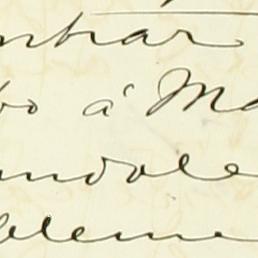 ntrar
bo á Ma
andole
bleme